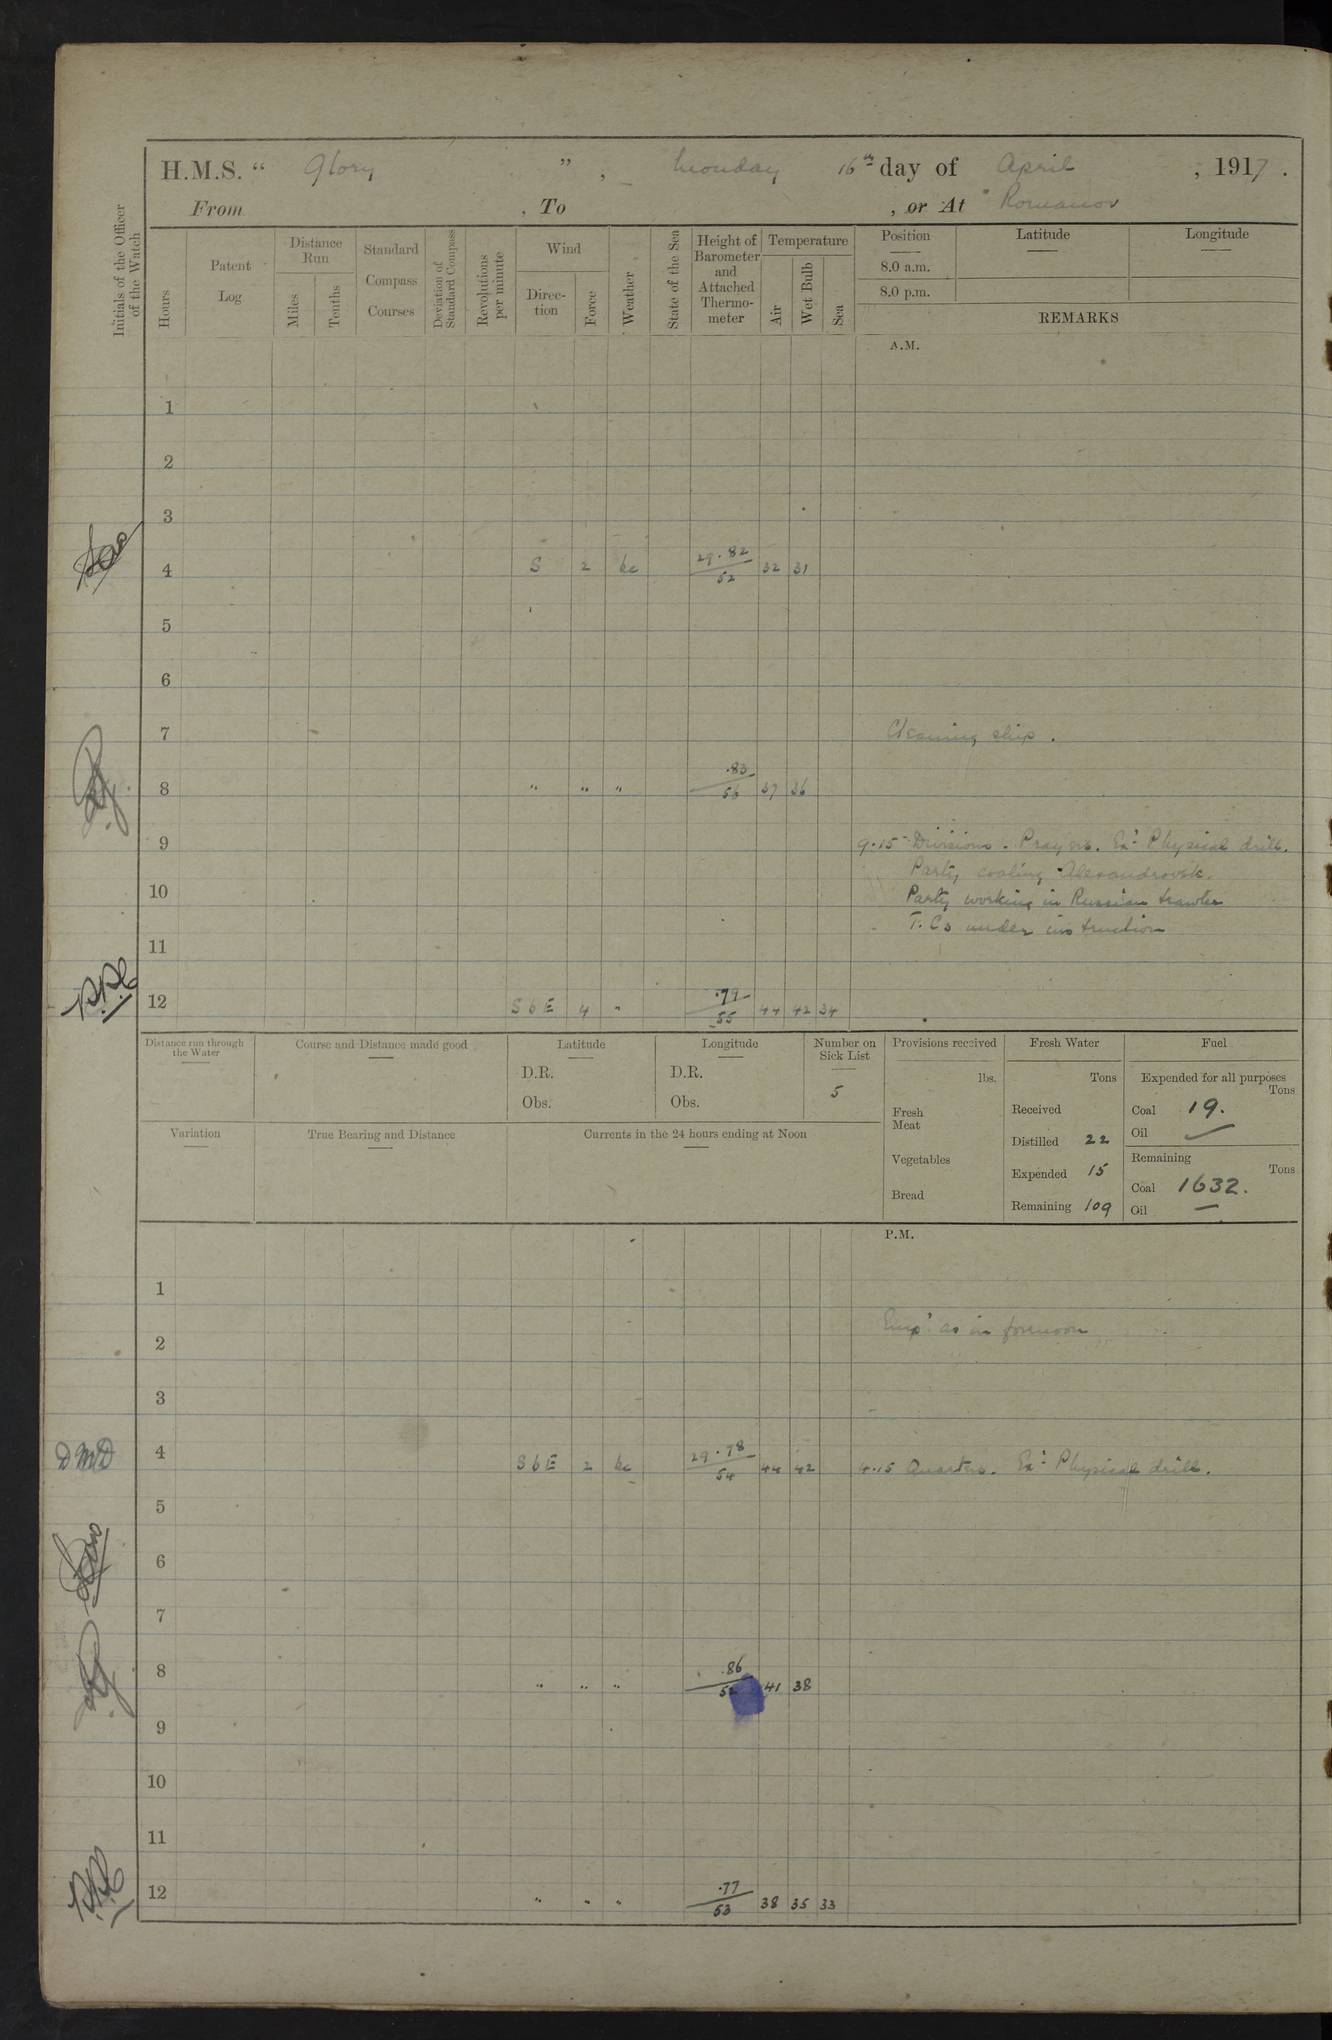 H.M.S. “ Glory ”, Monday 16th day of April, 1917.
From , To , or At Romanov
Initials of the Officer of the Watch
Hours
Patent Log
Distance Run
Miles
Tenths
Standard Compass Courses
Deviation of Standard Compass
Revolutions per minute
Wind
Direc-tion
Force
Weather
State of the Sea
Height of Barometer and Attached Thermo-meter
Temperature
Air
Wet Bulb
Sea
Position
8.0 a.m.
8.0 p.m.
Latitude
Longitude
REMARKS
A.M.
1
2
3
4 S 2 bc 29.82/52 32 31
5
6
7 Cleaning ship.
8 " " " .83/56 37 36
9 9.15 Divisions. Prayers. Ex: Physical drill.
Party coaling Alexandrovsk.
10 Party working in Russian trawler
T.Cs under instruction
11
12 S b E 4 " .79/55 44 42 34
Distance run through the Water
Course and Distance made good
Latitude
D.R.
Obs.
Longitude
D.R.
Obs.
Number on Sick List
5
Provisions received
lbs.
Fresh Meat
Vegetables
Bread
Fresh Water
Tons
Received
Distilled 22
Expended 15
Remaining 109
Fuel
Expended for all purposes
Tons
Coal 19.
Oil —
Remaining
Tons
Coal 1632.
Oil —
Variation
True Bearing and Distance
Currents in the 24 hours ending at Noon
P.M.
1
Emp' as in forenoon
2
3
DMD 4 S b E 2 bc 29.78/54 44 42 4.15 Quarters. Ex: Physical drill.
5
6
7
8 " " " .86/52 41 38
9
10
11
12 " " " .77/53 38 35 33